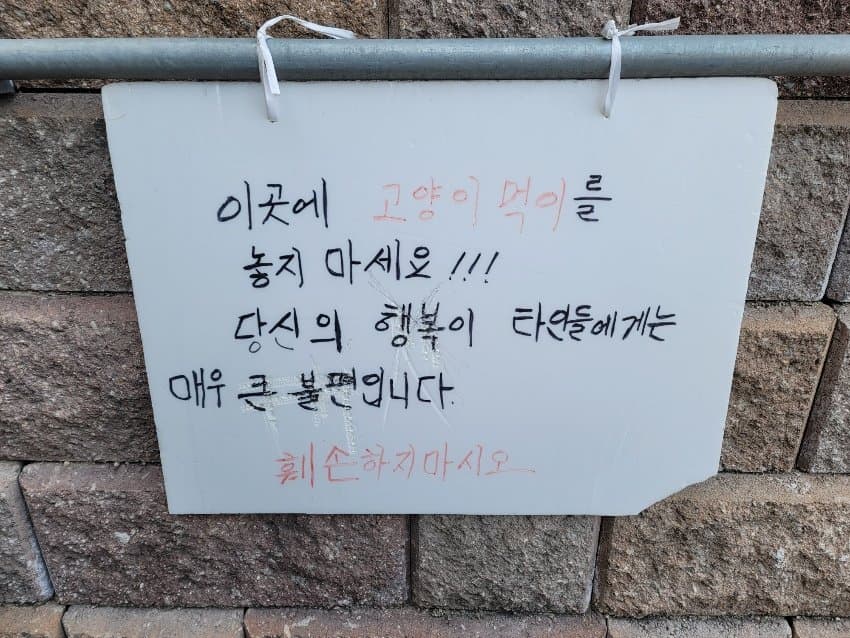 이곳에 고양이 먹이를
놓지 마세요!!!
당신의 행복이 타인들에게는
매우 큰 불편입니다.
훼손하지마시오